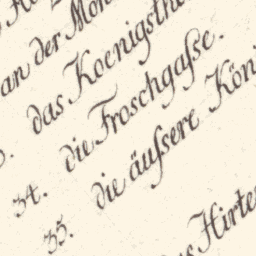 an der
das Koenigsth
34. die Froschgaſse.
35. die äuſsere Köni
Hirte